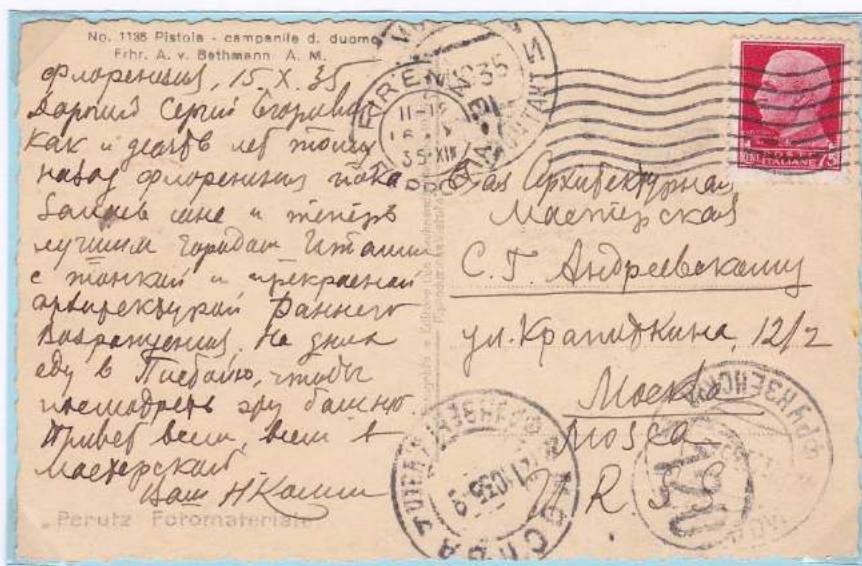 No. 1136 Pistoia - campanile d. duomo
Frhr. A. v. Bethmann A. M.
Флоренция, 15.X.35
Дорогой Сергей Егорович
Как и десять лет тому
назад Флоренция пока
мне и теперь
лучшим городом Италии
с тонкой и прекрасной
архитектурой Раннего
Возрождения. На днях
еду в Пистойю, чтобы
посмотреть эту башню.
Привет всем, всем в
мастерской
Ваш Н. Колли
Perutz Fotomaterial
POSTE
ITALIANE 75
FIRENZE
35·XIV
Архитектурная
Мастерская
С. Г. Андреевскому
ул. Кропоткина, 12/2
Москва
Mosca
U R. S. S.
МОСКВА
1035